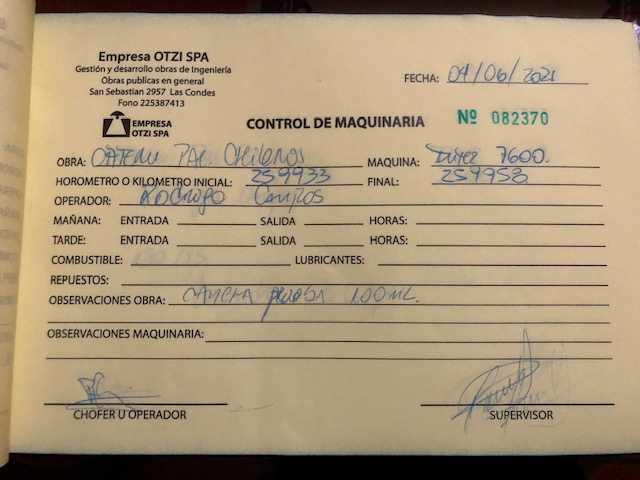 Empresa OTZI SPA
Gestión y desarrollo obras de Ingeniería
Obras publicas en general
San Sebastian 2957 Las Condes
Fono 225387413
FECHA: 04/06/2021
EMPRESA
OTZI SPA
CONTROL DE MAQUINARIA
Nº 082370
OBRA: MAQUINA: 7600.
HOROMETRO O KILOMETRO INICIAL: 259933 FINAL: 259958
OPERADOR: Rodrigo
MAÑANA: ENTRADA SALIDA HORAS:
TARDE: ENTRADA SALIDA HORAS:
COMBUSTIBLE: LUBRICANTES:
REPUESTOS:
OBSERVACIONES OBRA: 100 ML.
OBSERVACIONES MAQUINARIA:
CHOFER U OPERADOR SUPERVISOR